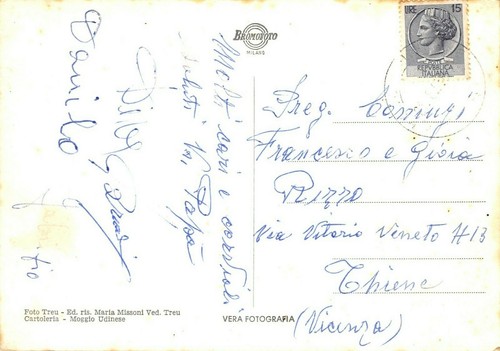 BROMOFOTO
MILANO
LIRE 15
REPVBBLICA
ITALIANA
Molti cari e cordiali
saluti
Papà
Danilo
zio
Preg.
Francesco e Gioia
Rizzo
Via Vittorio Veneto N13
Thiene
(Vicenza)
Foto Treu - Ed. ris. Maria Missoni Ved. Treu
Cartoleria - Moggio Udinese
VERA FOTOGRAFIA